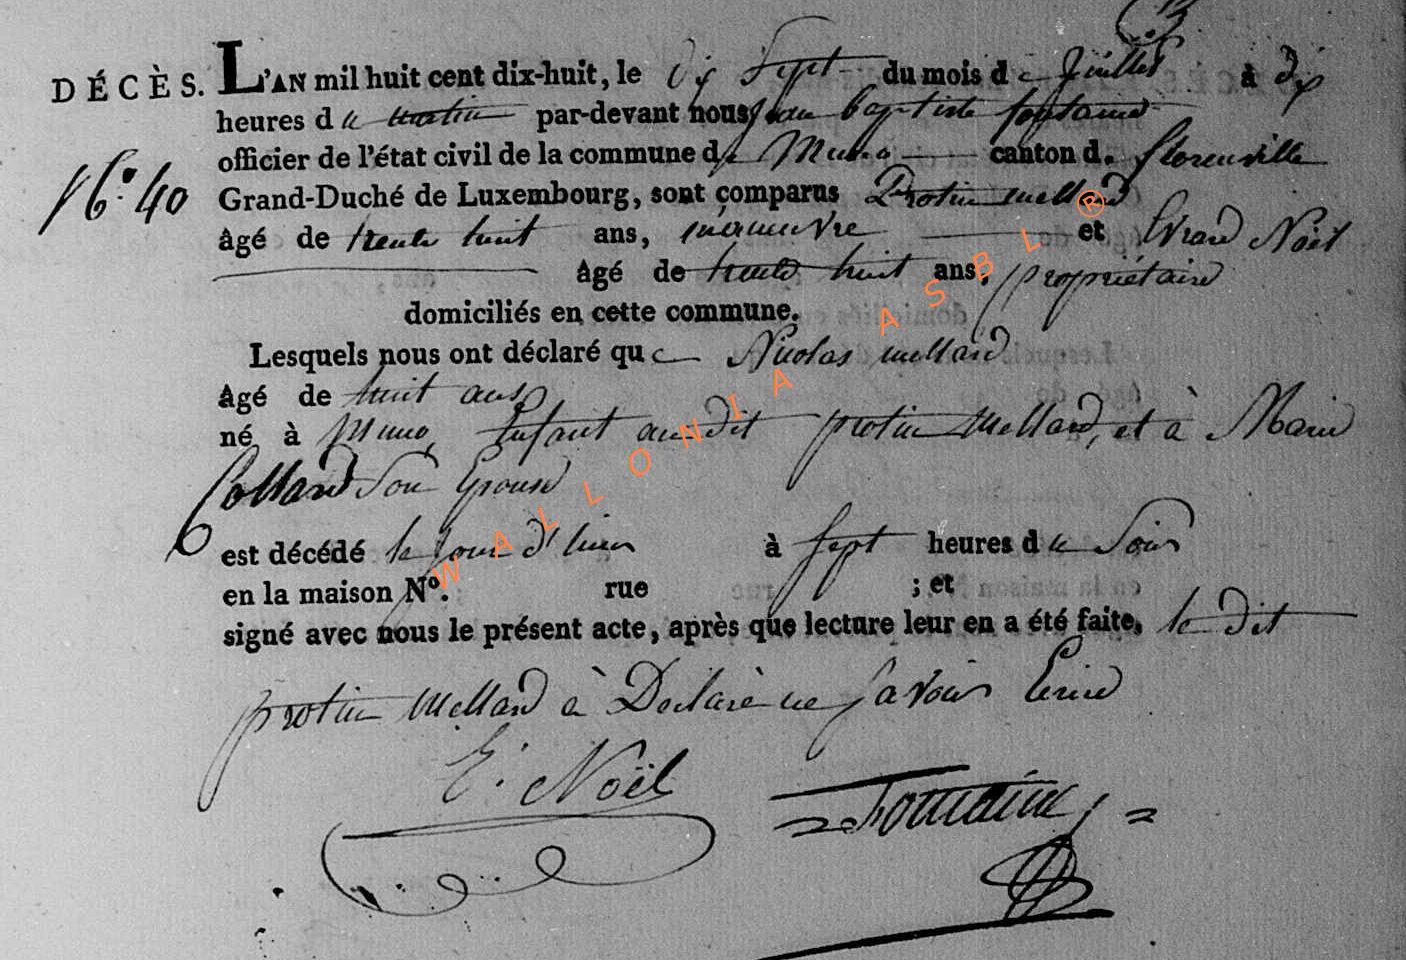 DÉCÈS. L'AN mil huit cent dix-huit, le dix Sept du mois de Juillet à dix
heures du matin par-devant nous Jean baptiste fontaine
officier de l'état civil de la commune de Muno canton de florenville
N°. 40
Grand-Duché de Luxembourg, sont comparus Protin mellard
âgé de trente huit ans, manœuvre et Evrard Noël
âgé de trente huit ans, propriétaire
domiciliés en cette commune.
Lesquels nous ont déclaré que Nicolas mellard
âgé de huit ans
né à Muno, Enfant au dit protin Mellard, et à Marie
Collard Son Epouse
est décédé le jour d'hier à sept heures du Soir
en la maison N°. rue ; et
signé avec nous le présent acte, après que lecture leur en a été faite, le dit
protin Mellard à Declaré ne savoir Ecrire
E. Noël
Fontaine
WALLONIA ASBL ®